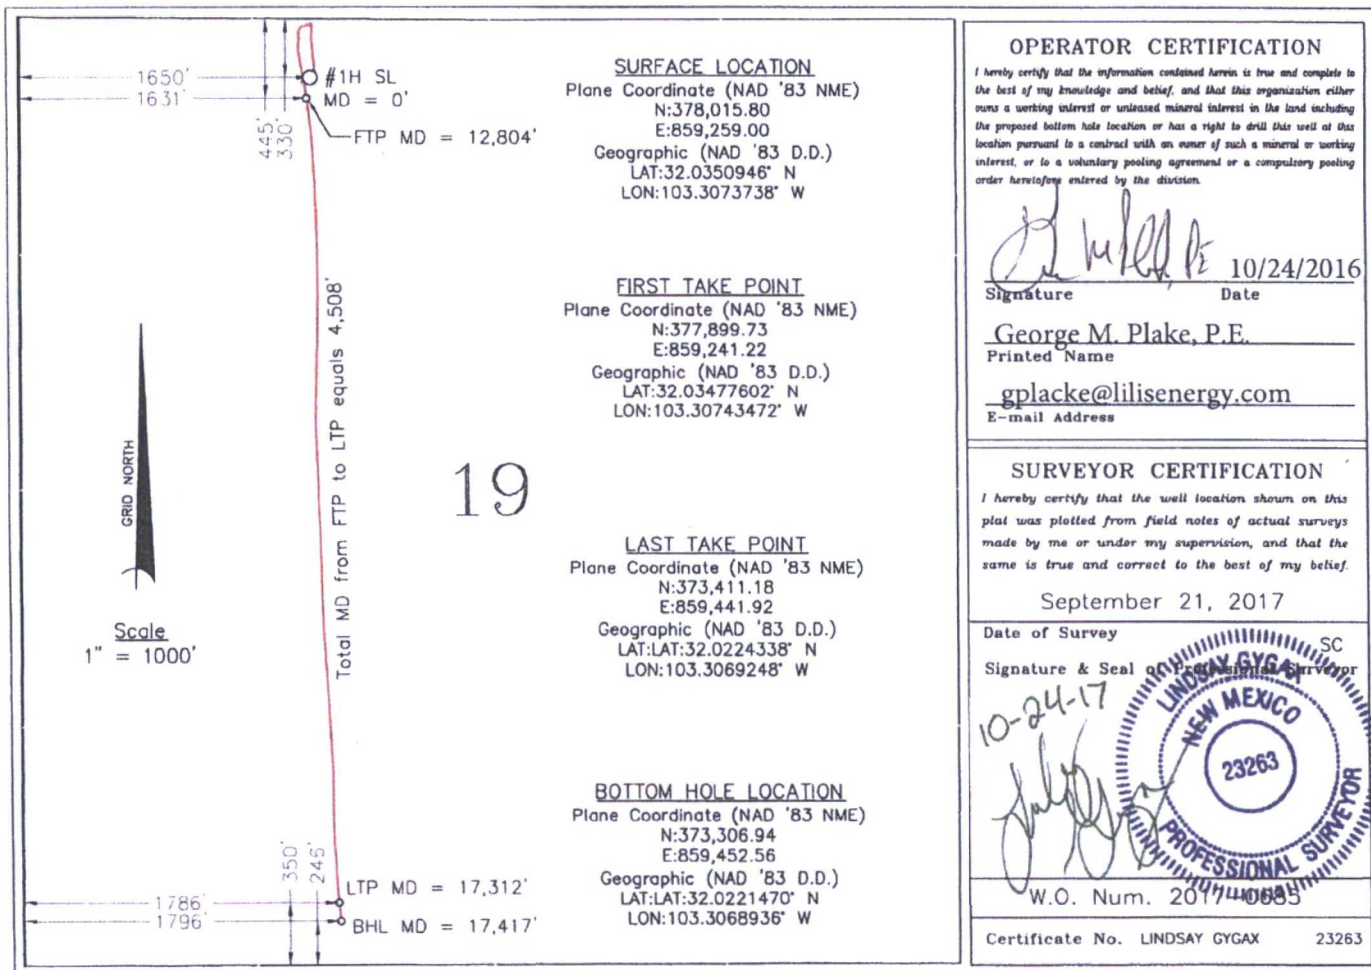 1650'
1631'
445'
330'
#1H SL
MD = 0'
FTP MD = 12,804'
Total MD from FTP to LTP equals 4,508'
GRID NORTH
Scale
1" = 1000'
19
350'
246'
1786'
1796'
LTP MD = 17,312'
BHL MD = 17,417'
SURFACE LOCATION
Plane Coordinate (NAD '83 NME)
N:378,015.80
E:859,259.00
Geographic (NAD '83 D.D.)
LAT:32.0350946° N
LON:103.3073738° W
FIRST TAKE POINT
Plane Coordinate (NAD '83 NME)
N:377,899.73
E:859,241.22
Geographic (NAD '83 D.D.)
LAT:32.03477602° N
LON:103.30743472° W
LAST TAKE POINT
Plane Coordinate (NAD '83 NME)
N:373,411.18
E:859,441.92
Geographic (NAD '83 D.D.)
LAT:LAT:32.0224338° N
LON:103.3069248° W
BOTTOM HOLE LOCATION
Plane Coordinate (NAD '83 NME)
N:373,306.94
E:859,452.56
Geographic (NAD '83 D.D.)
LAT:LAT:32.0221470° N
LON:103.3068936° W
OPERATOR CERTIFICATION
I hereby certify that the information contained herein is true and complete to
the best of my knowledge and belief, and that this organization either
owns a working interest or unleased mineral interest in the land including
the proposed bottom hole location or has a right to drill this well at this
location pursuant to a contract with an owner of such a mineral or working
interest, or to a voluntary pooling agreement or a compulsory pooling
order heretofore entered by the division.
10/24/2016
Signature Date
George M. Plake, P.E.
Printed Name
gplacke@lilisenergy.com
E-mail Address
SURVEYOR CERTIFICATION
I hereby certify that the well location shown on this
plat was plotted from field notes of actual surveys
made by me or under my supervision, and that the
same is true and correct to the best of my belief.
September 21, 2017
Date of Survey
SC
Signature & Seal of Professional Surveyor
10-24-17
LINDSAY GYGAX
NEW MEXICO
23263
PROFESSIONAL SURVEYOR
W.O. Num. 2017-0685
Certificate No. LINDSAY GYGAX 23263